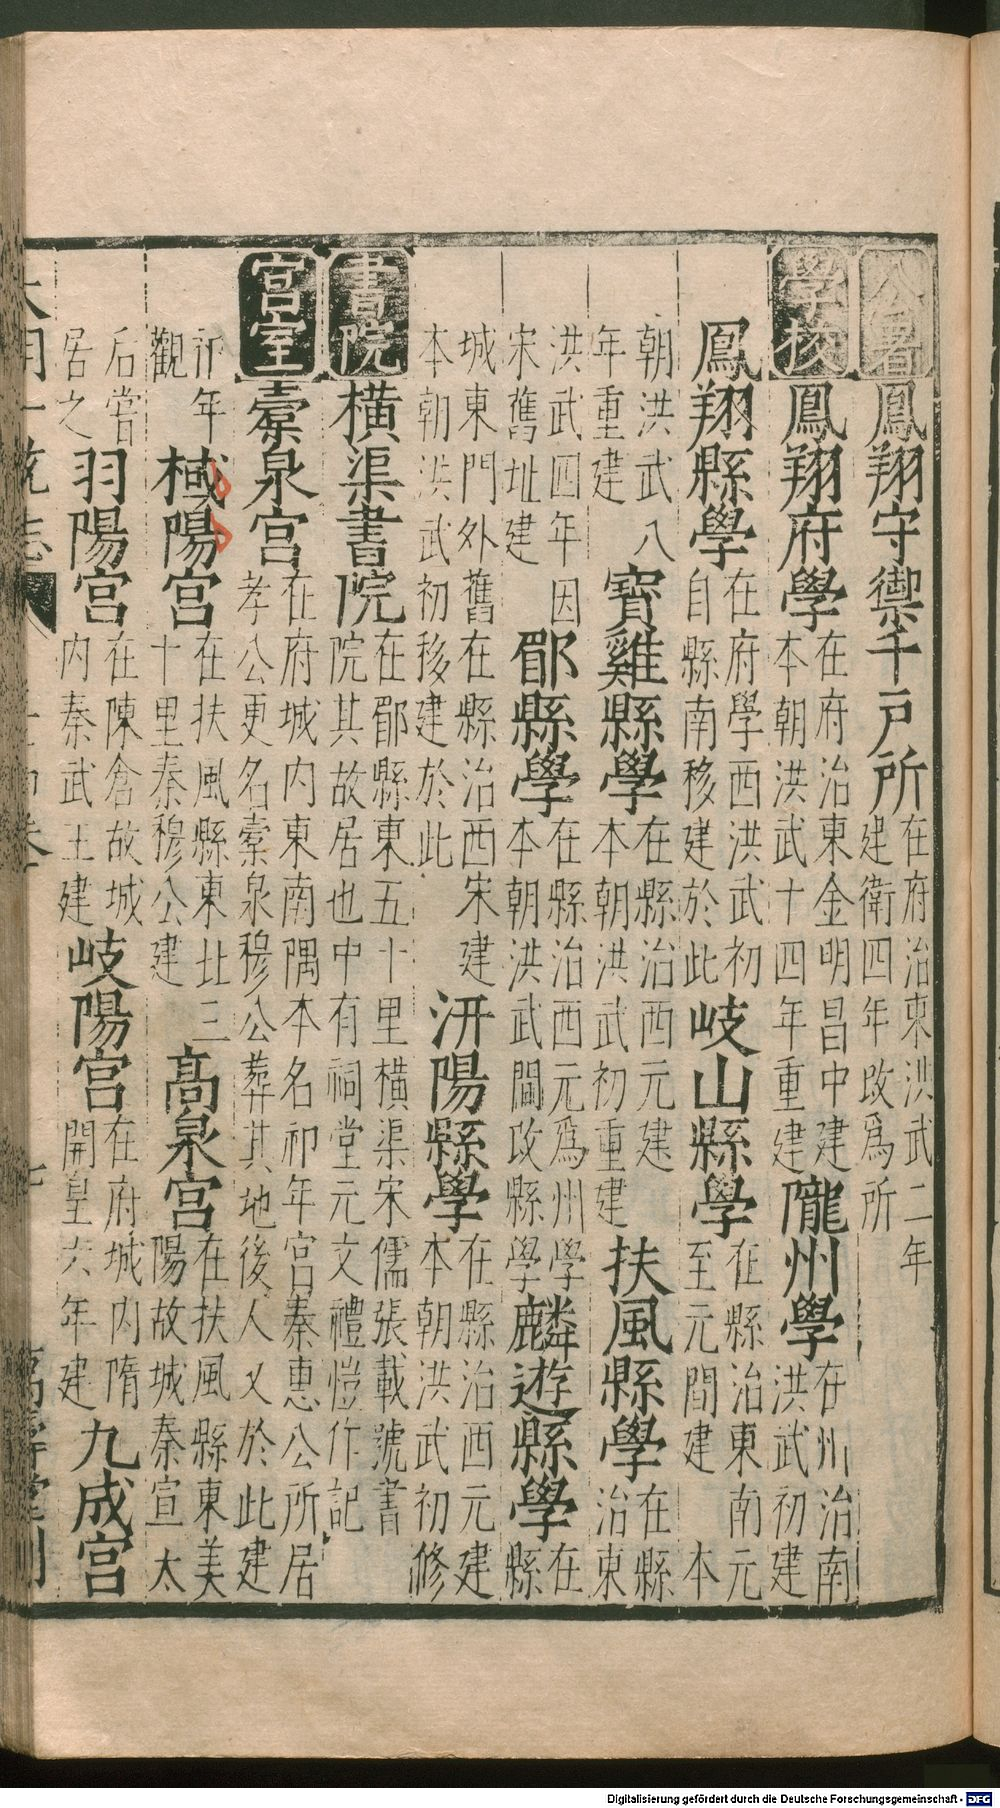 公署 鳳翔守禦千戶所 在府治東洪武二年建衛四年改爲所
學校 鳳翔府學 在府治東金明昌中建本朝洪武十四年重建 隴州學 在州治南洪武初建
鳳翔縣學 在府學西洪武初自縣南移建於此 岐山縣學 在縣治東南元至元間建 本
朝洪武八年重建 寳雞縣學 在縣治西元建本朝洪武初重建 扶風縣學 在縣治東
洪武四年因宋舊址建 郿縣學 在縣治西元爲州學本朝洪武間改縣學 麟遊縣學 在縣
城東門外舊在縣治西宋建本朝洪武初移建於此 汧陽縣學 在縣治西元建本朝洪武初修
書院 橫渠書院 在郿縣東五十里橫渠宋儒張載號書院其故居也中有祠堂元文禮愷作記
宮室 橐泉宮 在府城內東南隅本名祁年宮秦惠公所居孝公更名橐泉穆公葬其地後人又於此建
祁年觀 棫陽宮 在扶風縣東北三十里秦穆公建 高泉宮 在扶風縣東美陽故城秦宣太
后嘗居之 羽陽宮 在陳倉故城內秦武王建 岐陽宮 在府城內隋開皇六年建 九成宮
大明一統志 萬壽堂刊
Digitalisierung gefördert durch die Deutsche Forschungsgemeinschaft - DFG